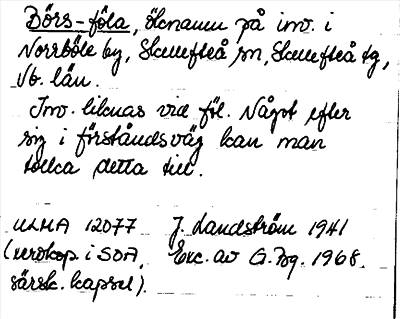 Börs-föla, öknamn på inv. i
Norrböle by, Skellefteå sn, Skellefteå tg,
Vb. län.
Inv. liknas vid föl. Något efter
sig i förståndsväg kan man
tolka detta till.
ULMA 12077 J. Landström 1941
(xerokop. i SOA, Exc. av G. Bg. 1968.
särsk. kapsel).